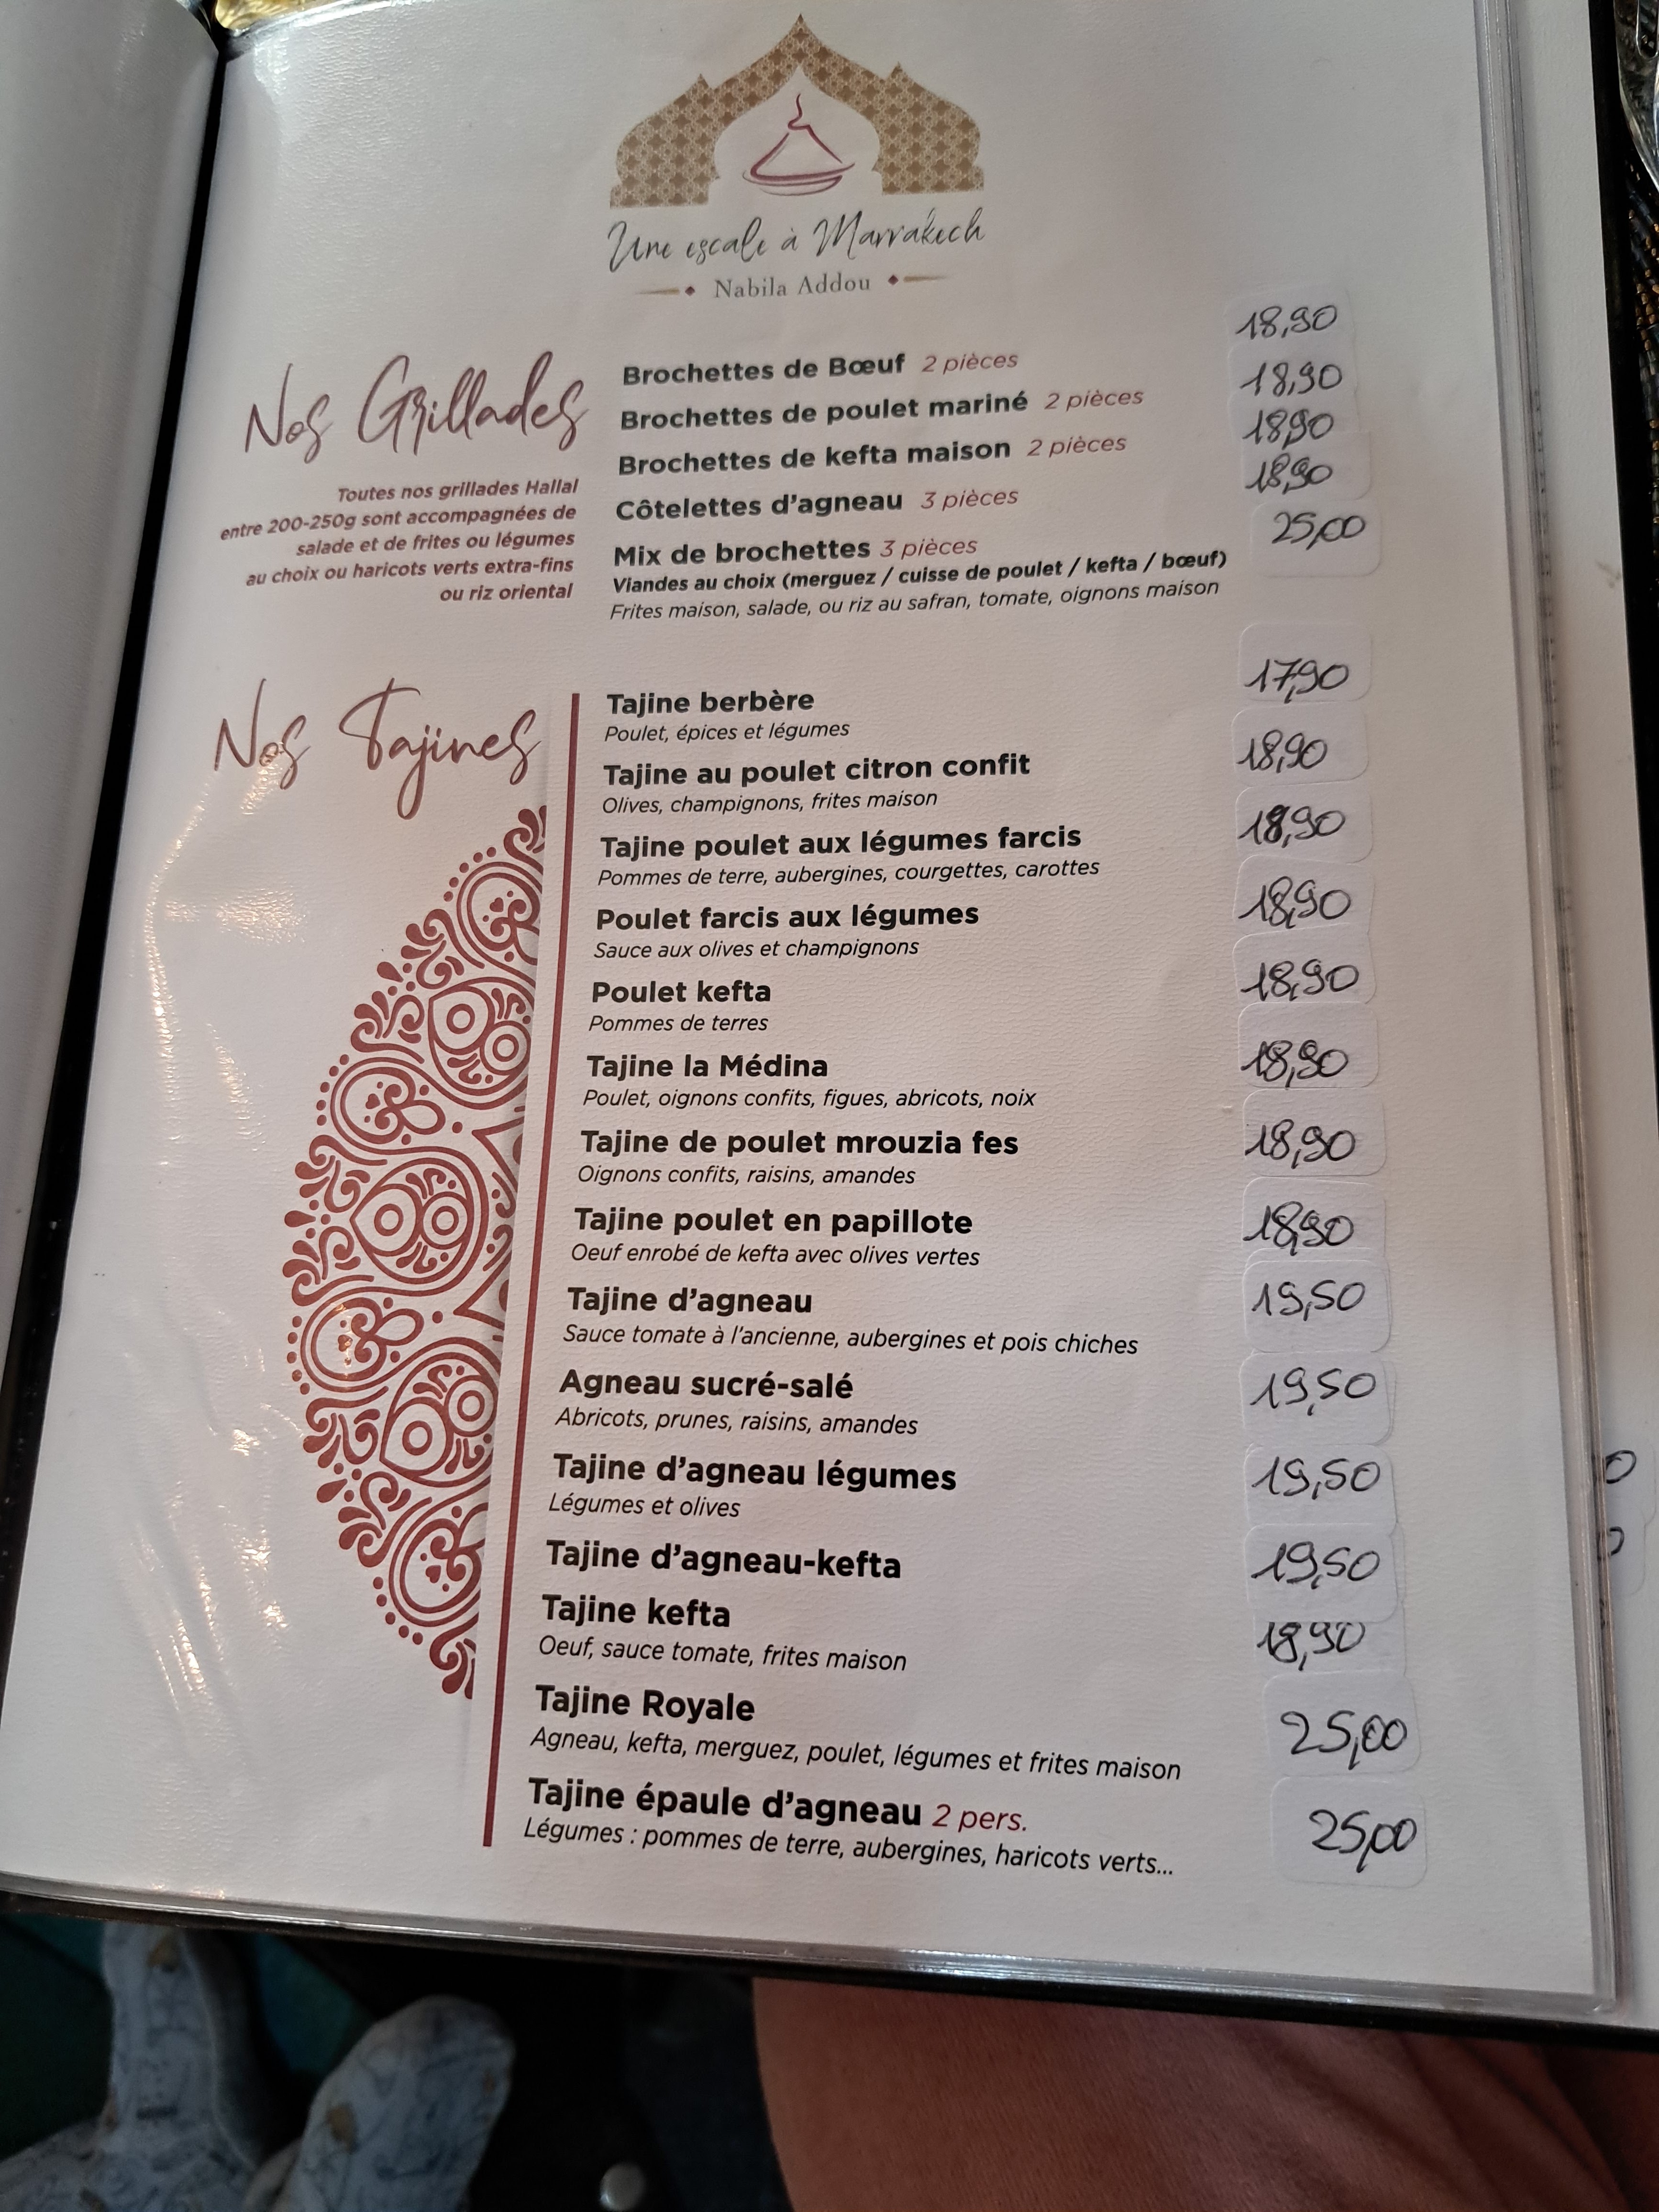 Une escale à Marrakech
Nabila Addou
Nos Grillades
Toutes nos grillades Hallal
entre 200-250g sont accompagnées de
salade et de frites ou légumes
au choix ou haricots verts extra-fins
ou riz oriental
Brochettes de Bœuf 2 pièces 18,90
Brochettes de poulet mariné 2 pièces 18,90
Brochettes de kefta maison 2 pièces 18,90
Côtelettes d'agneau 3 pièces 18,90
Mix de brochettes 3 pièces 25,00
Viandes au choix (merguez / cuisse de poulet / kefta / bœuf)
Frites maison, salade, ou riz au safran, tomate, oignons maison
Nos Tajines
Tajine berbère 17,90
Poulet, épices et légumes
Tajine au poulet citron confit 18,90
Olives, champignons, frites maison
Tajine poulet aux légumes farcis 18,90
Pommes de terre, aubergines, courgettes, carottes
Poulet farcis aux légumes 18,90
Sauce aux olives et champignons
Poulet kefta 18,90
Pommes de terres
Tajine la Médina 18,90
Poulet, oignons confits, figues, abricots, noix
Tajine de poulet mrouzia fes 18,90
Oignons confits, raisins, amandes
Tajine poulet en papillote 18,90
Oeuf enrobé de kefta avec olives vertes
Tajine d'agneau 19,50
Sauce tomate à l'ancienne, aubergines et pois chiches
Agneau sucré-salé 19,50
Abricots, prunes, raisins, amandes
Tajine d'agneau légumes 19,50
Légumes et olives
Tajine d'agneau-kefta 19,50
Tajine kefta 18,90
Oeuf, sauce tomate, frites maison
Tajine Royale 25,00
Agneau, kefta, merguez, poulet, légumes et frites maison
Tajine épaule d'agneau 2 pers. 25,00
Légumes : pommes de terre, aubergines, haricots verts...